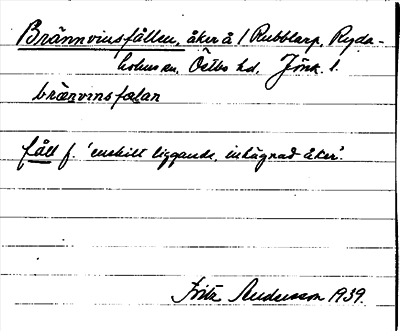 Brännvinsfållen, åker å 1 Rubblarp, Ryda-
holms sn, Östbo hd, Jönk. l.
brænvinsfɷlan
fåll f. 'enskilt liggande, inhägnad åker'.
Fritz Andersson 1939.